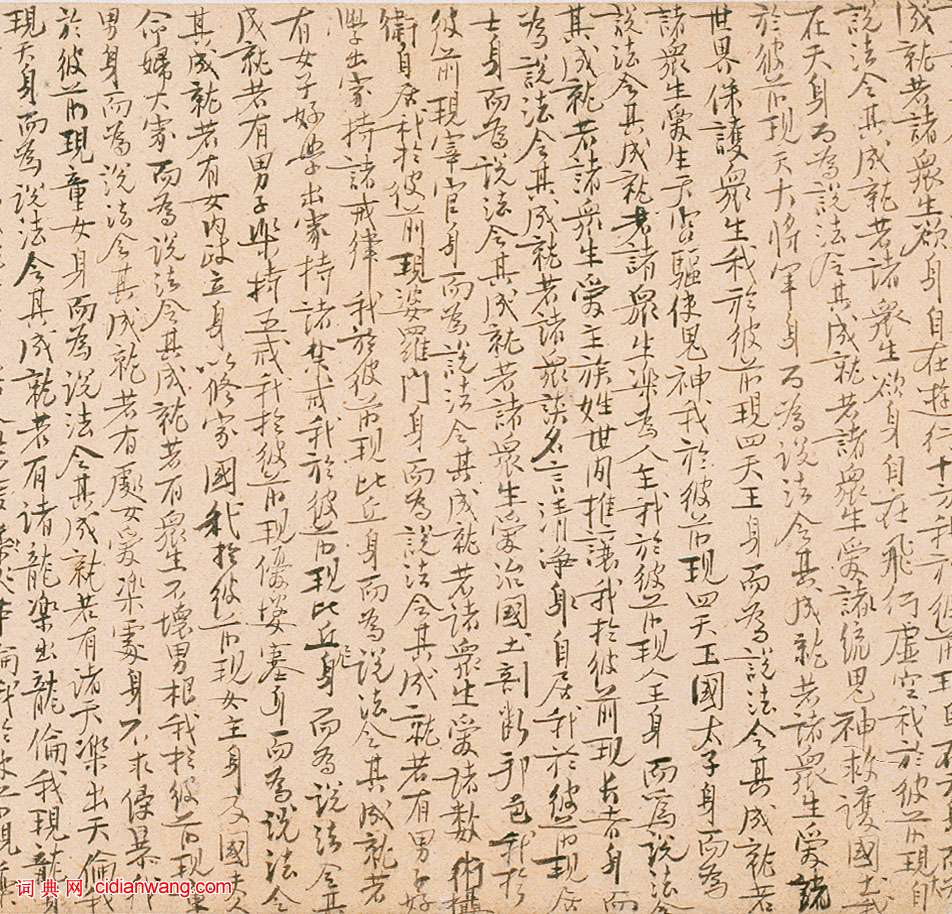 成就若諸眾生欲身自在遊行十方我於彼前現
說法令其成就若諸眾生欲身自在飛行虛空我於彼前現自
在天身而為說法令其成就若諸眾生愛諸統鬼神救護國土我
於彼前現天大將軍身而為說法令其成就若諸眾生愛統
世界保護眾生我於彼前現四天王身而為說法令其成就若
諸眾生愛生天宮驅使鬼神我於彼前現四天王國太子身而為
說法令其成就若諸眾生樂為人主我於彼前現人主身而為說法令
其成就若諸眾生愛主族姓世間推讓我於彼前現長者身而
為說法令其成就若諸眾談名言清淨身自居我於彼前現居
士身而為說法令其成就若諸眾生愛治國土剖斷邦邑我於
彼前現宰官身而為說法令其成就若諸眾生愛諸數術攝
衛身居我於彼前現婆羅門身而為說法令其成就若有男子好
學出家持諸戒律我於彼前現比丘身而為說法令其成就若
有女子好學出家持諸禁戒我於彼前現比丘尼身而為說法令其
成就若有男子樂持五戒我於彼前現優婆塞身而為說法令
其成就若有女內政立身以修家國我於彼前現女主身及國夫人
命婦大家而為說法令其成就若有眾生不壞男根我於彼前現童
男身而為說法令其成就若有處女愛樂處身不求侵暴我
於彼前現童女身而為說法令其成就若有諸天樂出天倫我
現天身而為說法令其成就若有諸龍樂出龍倫我現龍身
词典网 cidianwang.com